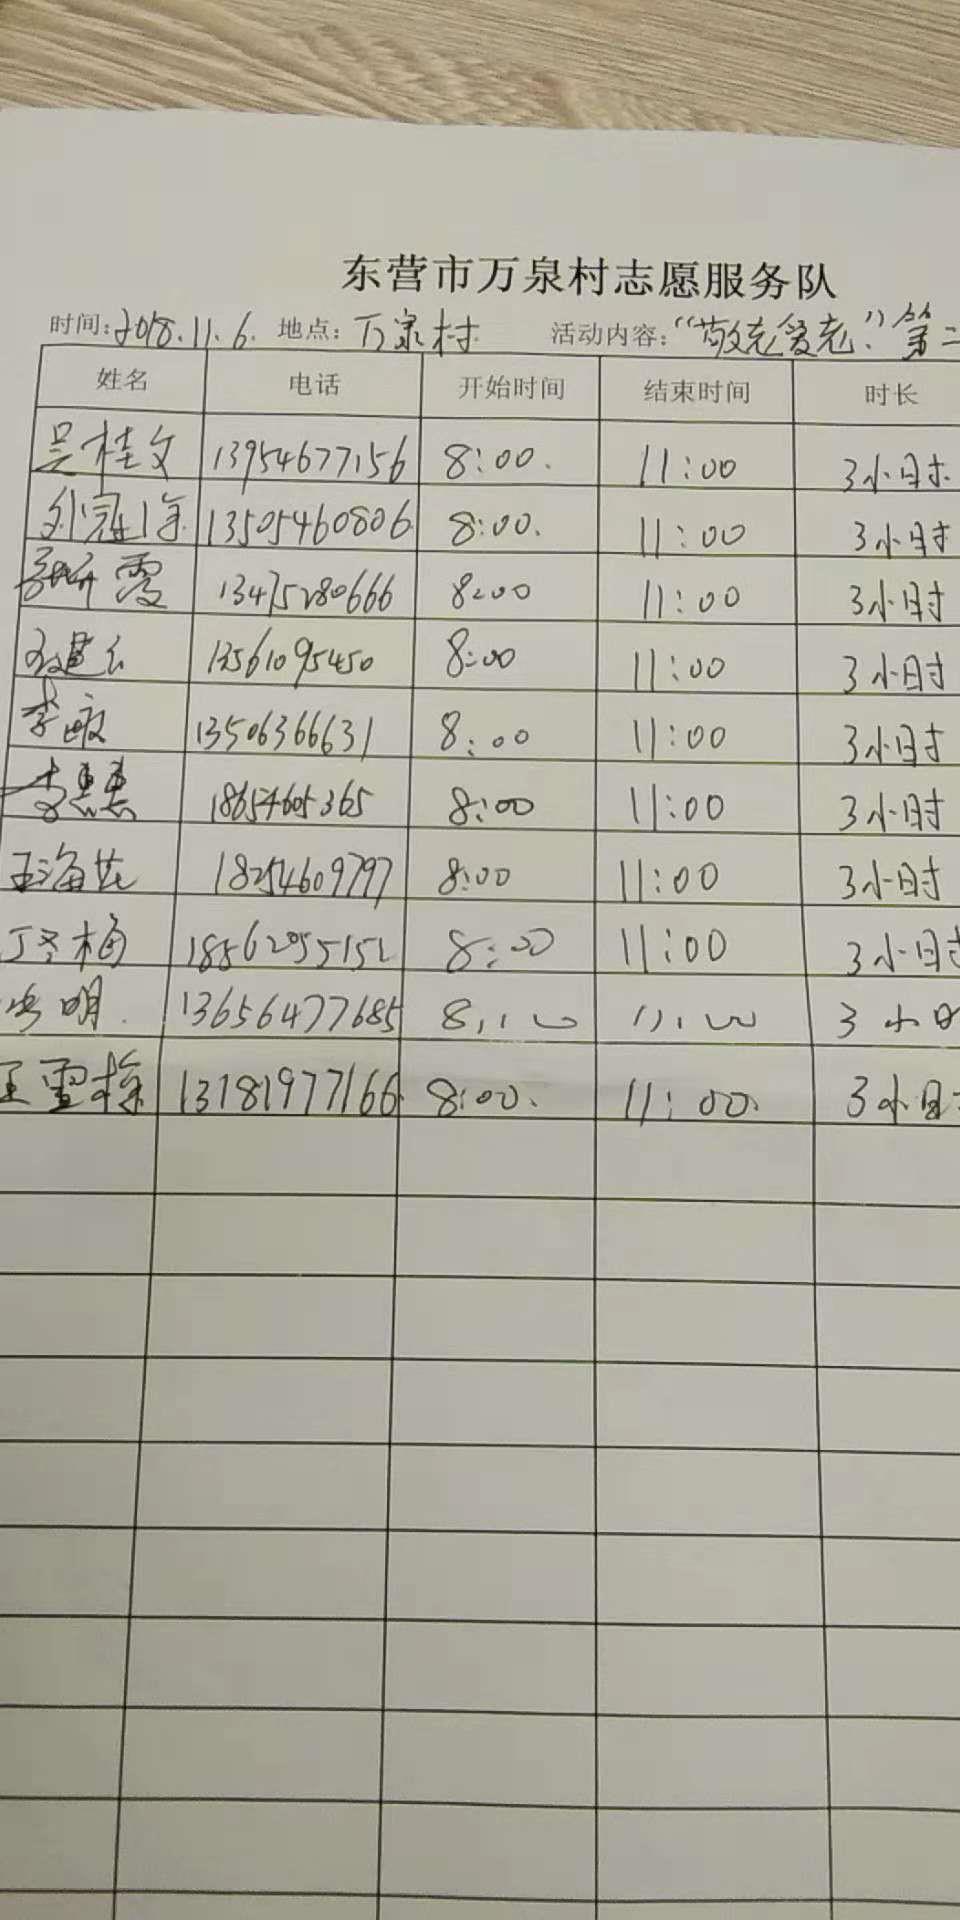 东营市万泉村志愿服务队
时间: 2018.11.6. 地点: 万泉村 活动内容: "敬老爱老" 第二
姓名 电话 开始时间 结束时间 时长
吴桂文 13954677156 8:00. 11:00 3小时
13505460806 8:00. 11:00 3小时
霞 13475280666 8:00 11:00 3小时
13561095450 8:00 11:00 3小时
李敏 13506366631 8:00 11:00 3小时
李惠惠 18654605365 8:00 11:00 3小时
王海花 18254609797 8:00 11:00 3小时
丁冬梅 18562055152 8:00 11:00 3小时
明 13656477685 8:00 11:00 3小时
王雪 13181977166 8:00. 11:00. 3小时